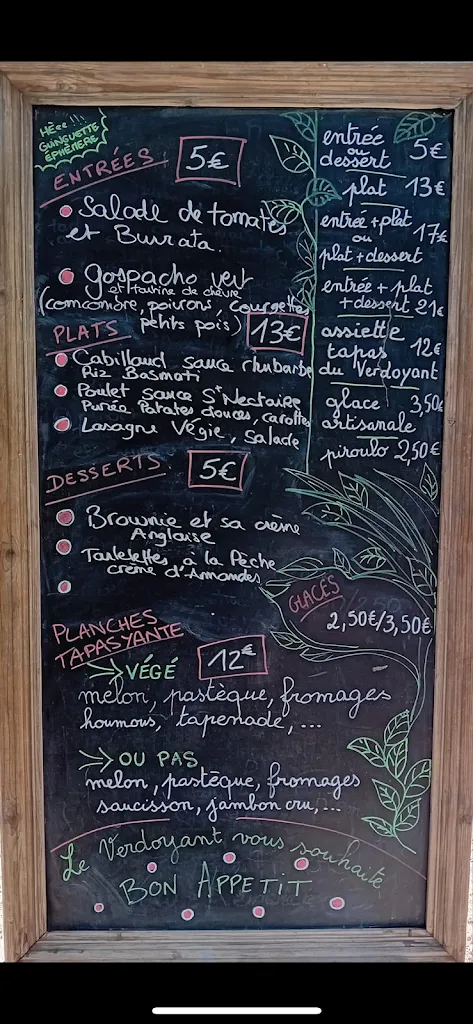 HÈee !!!
GUINGUETTE
ÉPHÉMÈRE
ENTRÉES 5€
Salade de tomates
et Burrata.
gospacho vert
(comcombre, poivrons, courgettes
petits pois)
PLATS 13€
Cabillaud sauce rhubarbe
Riz Basmati
Poulet sauce St Nectaire
Purée Patates douces, carottes
Lasagne Végie, Salade
DESSERTS. 5€
Brownie et sa crème
Anglaise
Tartelettes à la Pêche
crème d'Amandes
PLANCHES
TAPASYANTE 12€
VÉGÉ
melon, pastèque, fromages
houmous, tapenade, ...
OU PAS
melon, pastèque, fromages
saucisson, jambon cru, ...
entrée
ou
dessert 5€
plat 13€
entrée + plat
ou 17€
plat + dessert
entrée + plat
+ dessert 21€
assiette
tapas 12€
du Verdoyant
glace 3,50€
artisanale
piroulo 2,50€
GLACES
2,50€/3,50€
Le Verdoyant vous souhaite
BON APPETIT